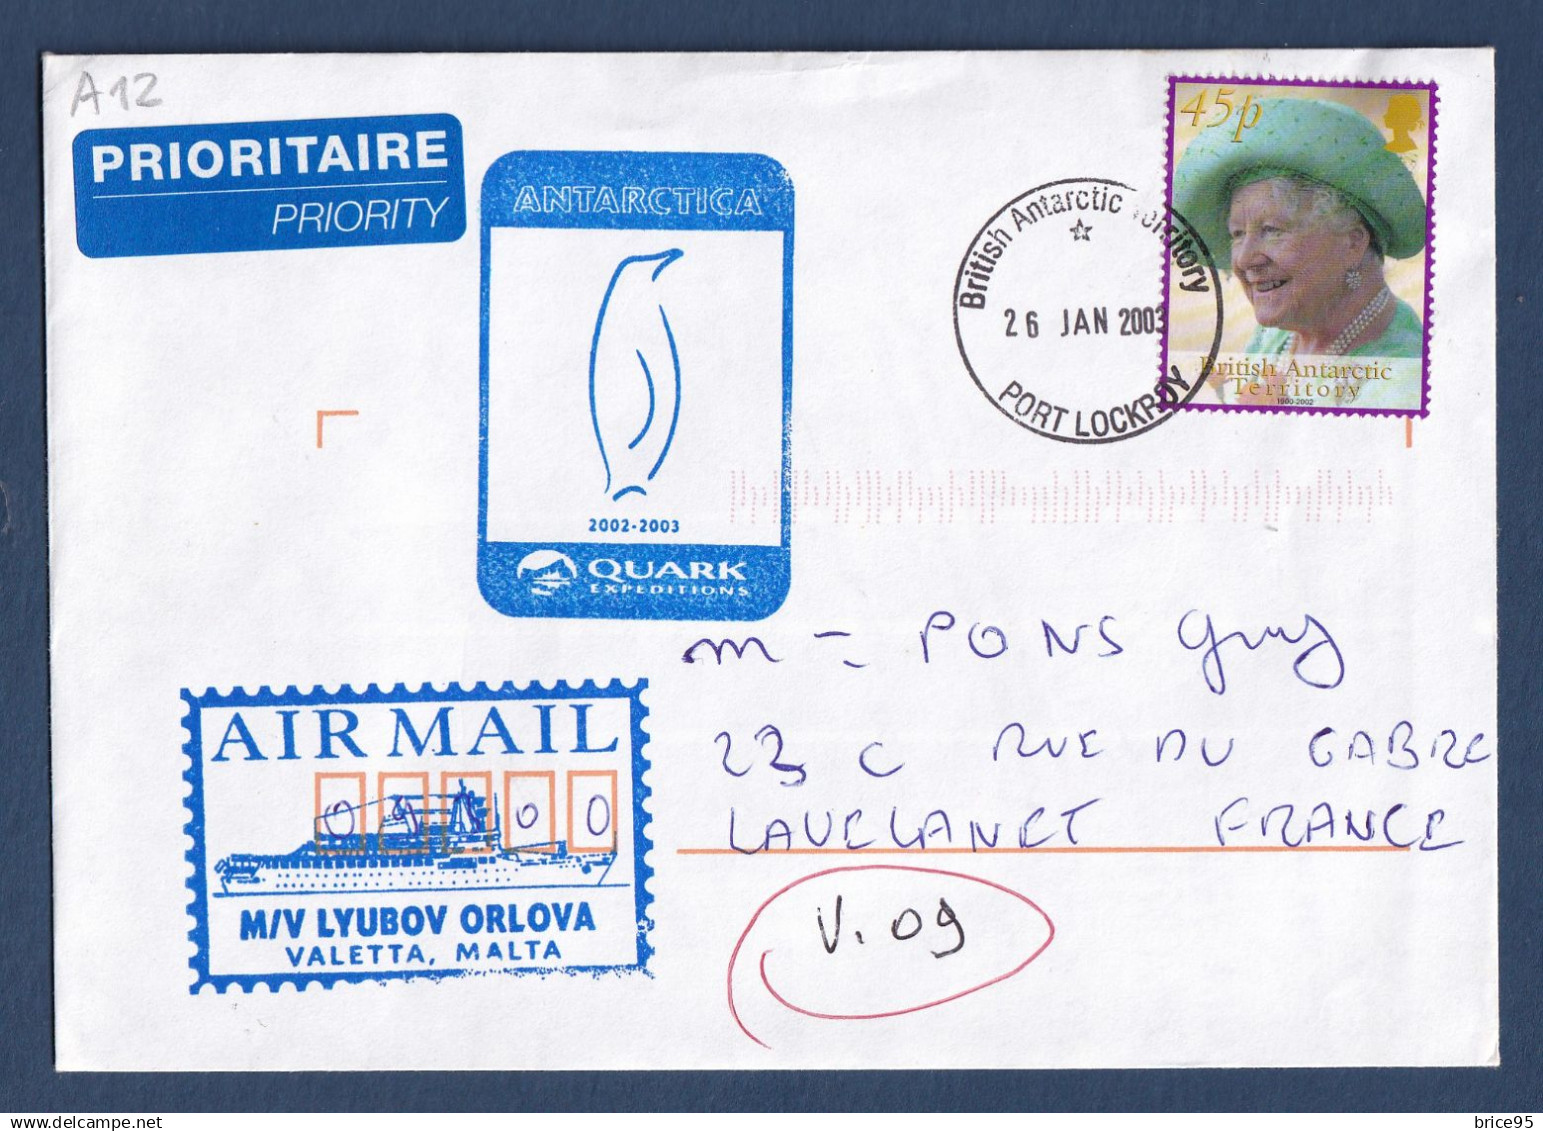 A12
PRIORITAIRE
PRIORITY
ANTARCTICA
2002-2003
QUARK
EXPEDITIONS
British Antarctic Territory
26 JAN 2003
PORT LOCKROY
45p
British Antarctic
Territory
1900-2002
m - PONS Guy
23 C RUE DU GABRE
LAVELANET FRANCE
AIR MAIL
09300
M/V LYUBOV ORLOVA
VALETTA, MALTA
V. 09
delcampe.net
brice95